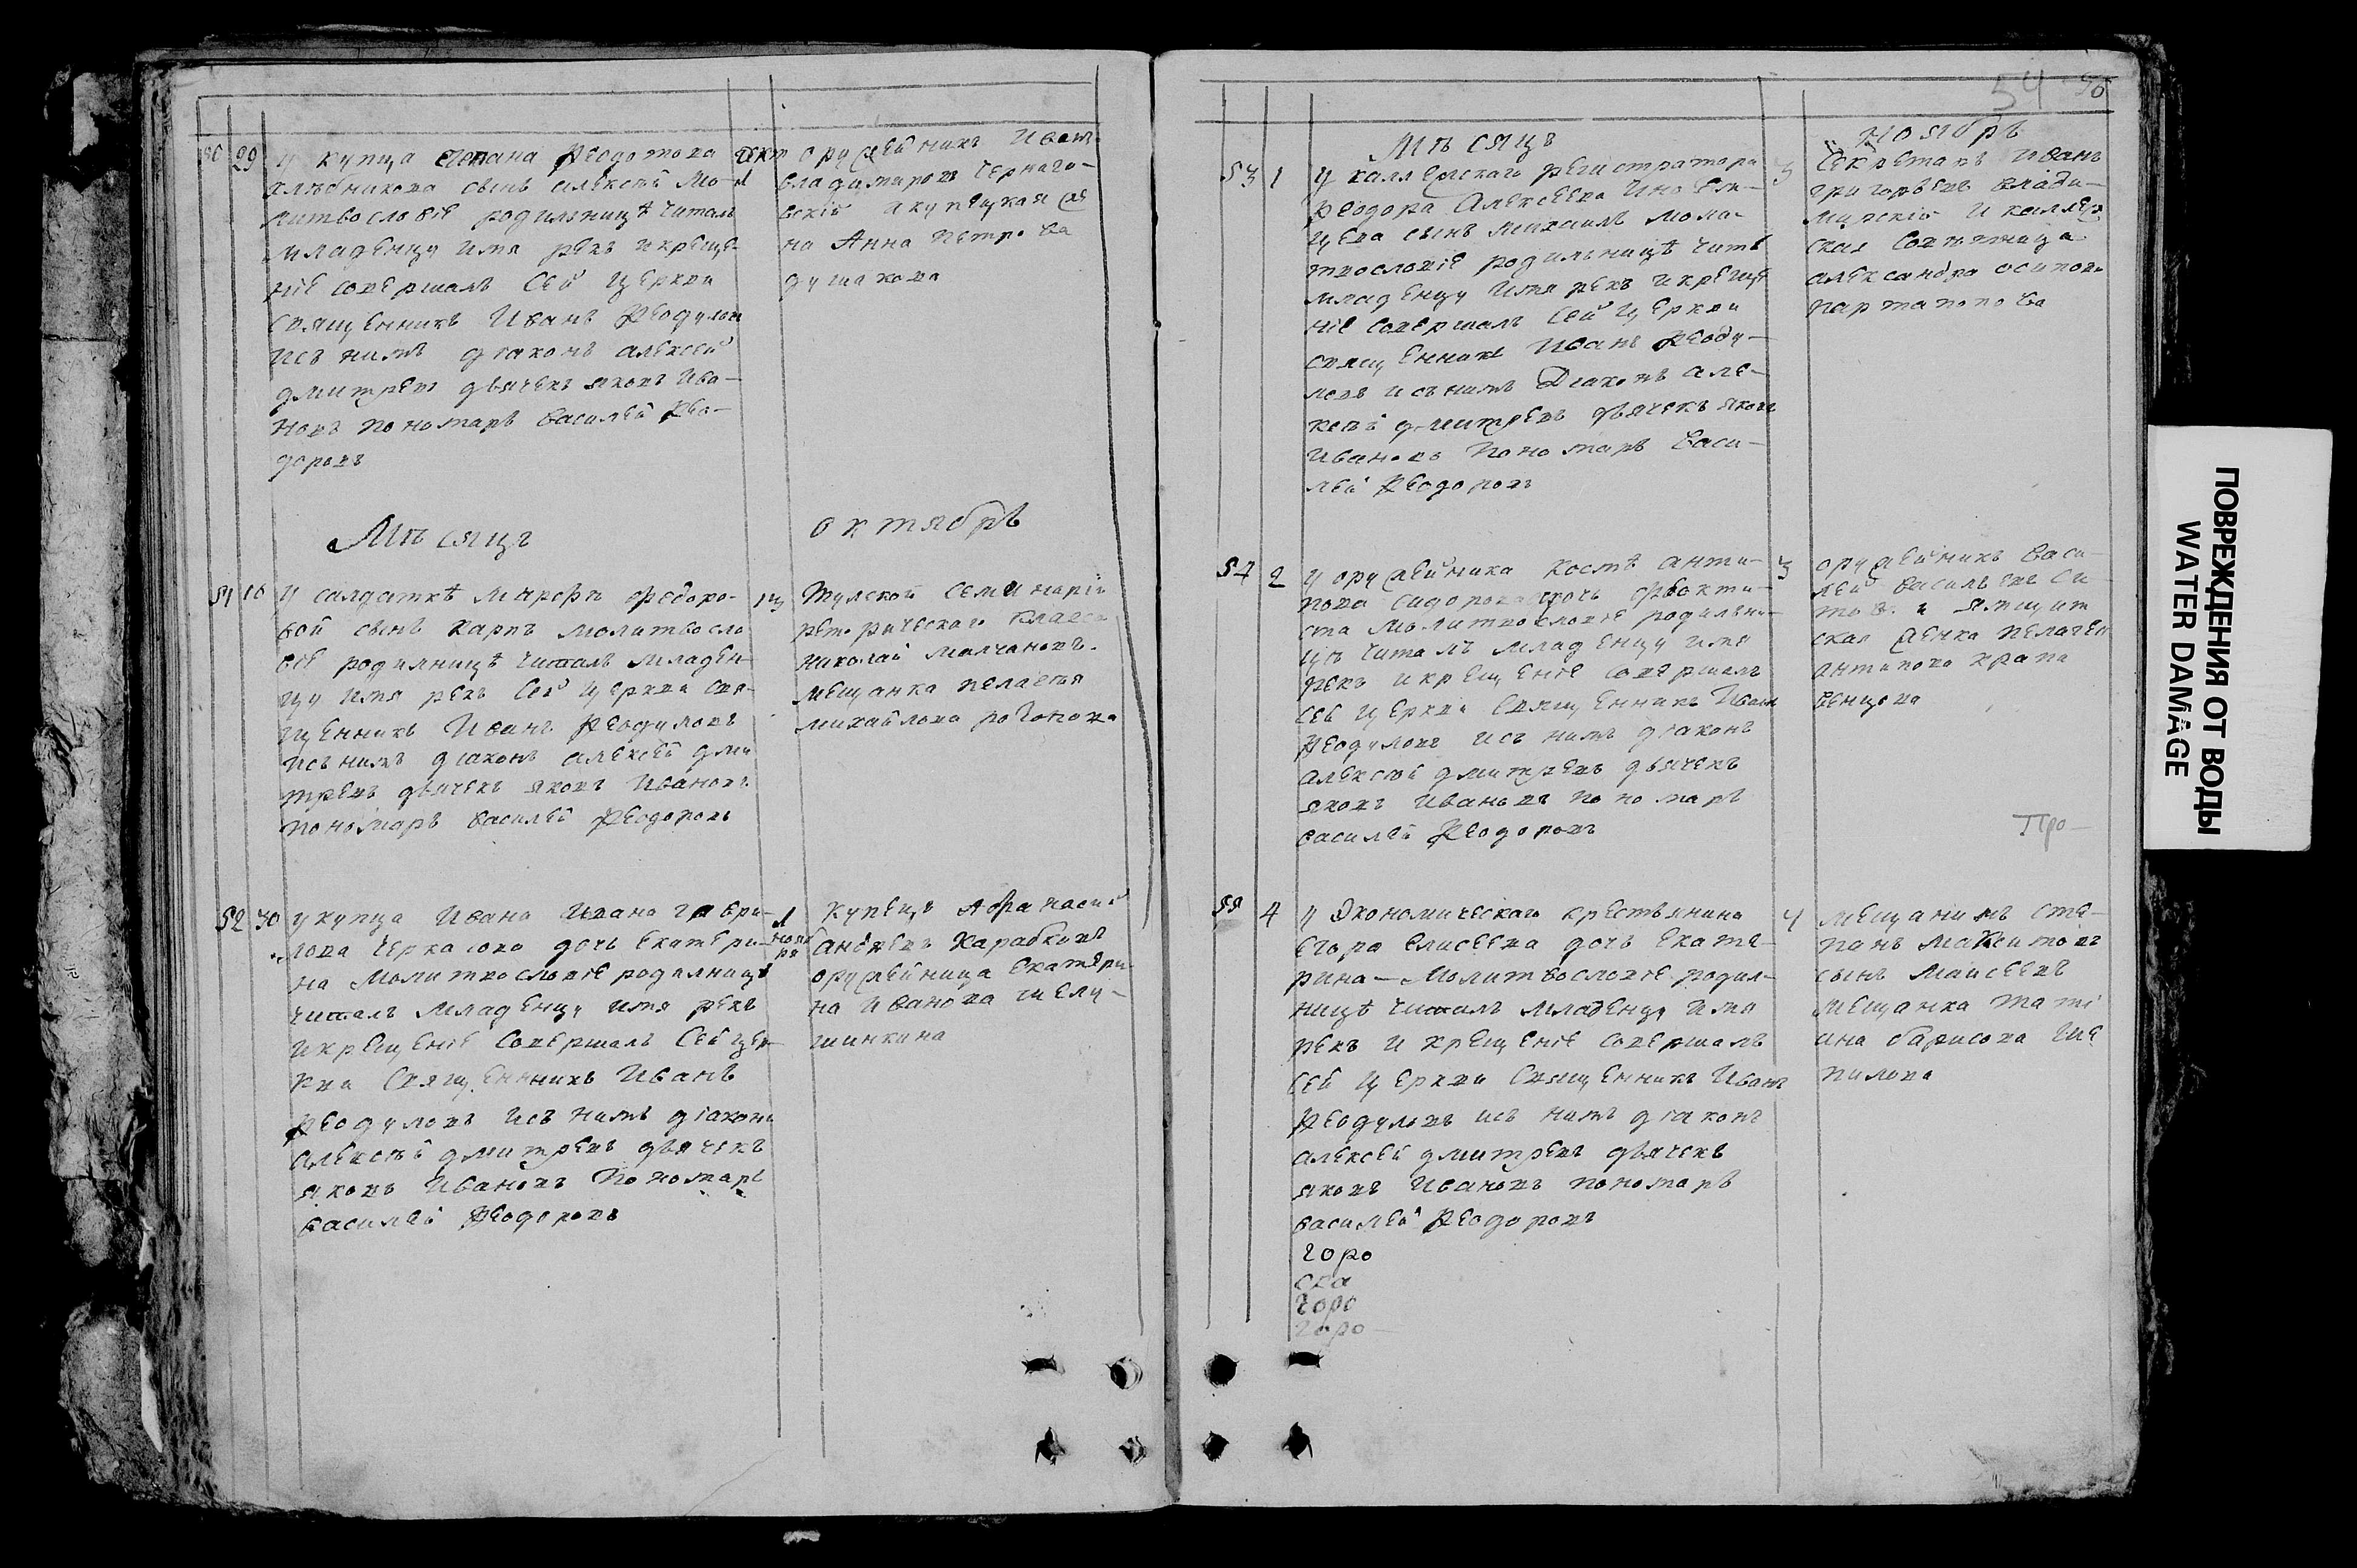 50 29 у купца Степана Феодотова
хлѣбникова сынъ алексѣй Мо-
литвословіе родильницѣ читалъ
младенцу имя рекъ и креще-
ніе совершалъ Сей церкви
священникъ Иванъ Феодуловъ
исъ нимъ діаконъ алексей
дмитревъ дьячекъ яковъ Ива-
новъ пономарь василей Фео-
доровъ
окт 1
оружейникъ Иванъ
владимировъ черного-
вскій и купецкая же
на Анна Петрова
душакова
Мѣсяцъ октябрь
51 16 У салдаткѣ Марфѣ Федоро-
вой сынъ Карпъ молитвосло
віе родилницѣ читалъ младен-
цу имя рекъ Сей церкви свя-
щенникъ Иванъ Феодуловъ
исъ нимъ діаконъ алексѣй дми
тревъ дьячекъ яковъ Ивановъ
пономарь василей Феодоровъ
Тулской Семинаріи
реторическаго класса
николай молчановъ
мещанка пелагея
михайлова
52 30 у купца Ивана Ивана гаври-
лова Черкасова дочь Екатери-
на Молитвословіе родилницѣ
читалъ младенцу имя рекъ
и крещеніе совершалъ Сей цер-
кви Священникъ Иванъ
Феодуловъ исъ нимъ діаконъ
алексѣй дмитревъ дьячекъ
яковъ Ивановъ пономарь
василей Феодоровъ
1 нояб
ря
купецъ Афанасий
андревъ Карабковъ
оружейница Екатери-
на Иванова шелу-
шинкина
54
Мѣсяцъ Ноябрь
53 1 У каллежскаго регистратора
Феодора Алексеева Иноземъ-
цева сынъ михаилъ моли-
твословіе родильницѣ читъ
младенцу имя рекъ и креще
ніе совершалъ сей церкви
священникъ Иванъ Феоду-
ловъ и съ нимъ Діаконъ але-
ксѣй дмитревъ дьячекъ яковъ
Ивановъ пономарь Васи-
лей Феодоровъ
3
Секретарь Иванъ
григорьевъ влади-
мирскій и каллеж
ская Совѣтница
александра осипова
партапопова
54 2 У оружейника Космѣ анти-
пова сидорова дочь феокти-
ста Молитвословіе родильни-
цѣ читалъ младенцу имя
рекъ и крещеніе совершалъ
сей церкви Священникъ Иванъ
Феодуловъ исъ нимъ діаконъ
алексѣй дмитревъ дьячекъ
яковъ Ивановъ пономарь
василей Феодоровъ
3
оружейникъ Васи-
лей васильевъ Си-
товъ и
ская женка пелагея
антипова крапи
венцова
Про-
55 4 У Экономическаго крестьянина
Егора Елисеева дочь Екате-
рина - Молитвословіе родил-
ницѣ читалъ младенцу имя
рекъ и крещеніе совершалъ
сей церкви Священникъ Иванъ
Феодуловъ исъ нимъ діаконъ
алексей дмитревъ дьячекъ
яковъ Ивановъ пономарь
василей Феодоровъ
горо
ска
горо
горо-
4
мещанинъ сте-
панъ Максимовъ
сынъ Маисеевъ
мещанка Тати
ина барисова Ши
пилова
ПОВРЕЖДЕНИЯ ОТ ВОДЫ
WATER DAMAGE